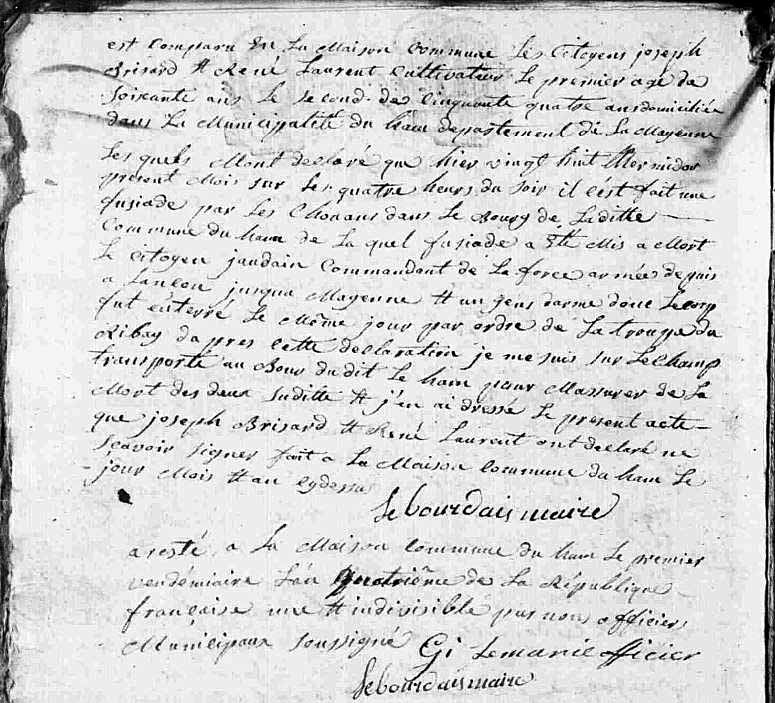 est comparu En La Maison Commune Les Citoyens joseph
Brisard Et René Laurent Cultivateur Le premier agé de
Soixante ans Le second de Cinquante quatre ans domiciliée
dans La Municipalité du ham departement de La Mayenne
Les quels Mont declaré que hier vingt huit thermidor
present Mois sur les quatre heurs du soir il c'est fait une
fusiade par Les Chouans dans Le Bourg de Laditte
Commune du ham de La quel fusiade a Eté Mis a Mort
Le Citoyen jaudain Commandant de La force armée depuis
a Lancon jusqua Mayenne Et un jens darme donc Le corp
fut entèrré Le Même jour par ordre de La troupe du
Ribay dapres Cette declaration je me suis sur Le Champ
transporté au Bour du dit Le ham pour Massurer de La
Mort des deux Suditte Et j'en ai dressé Le present acte
que joseph Brisard Et René Laurent ont declaré ne
Scavoir Signer fait a La Maison Commune du ham Le
jour Mois Et an Cydessus
Lebourdais maire
aresté a La Maison Commune du ham Le premier
vendémiaire L'an quatrième de La République
française une Et indivisible par nous officiers
Municipaux Soussigné Gi Lemarie officier
Lebourdais maire